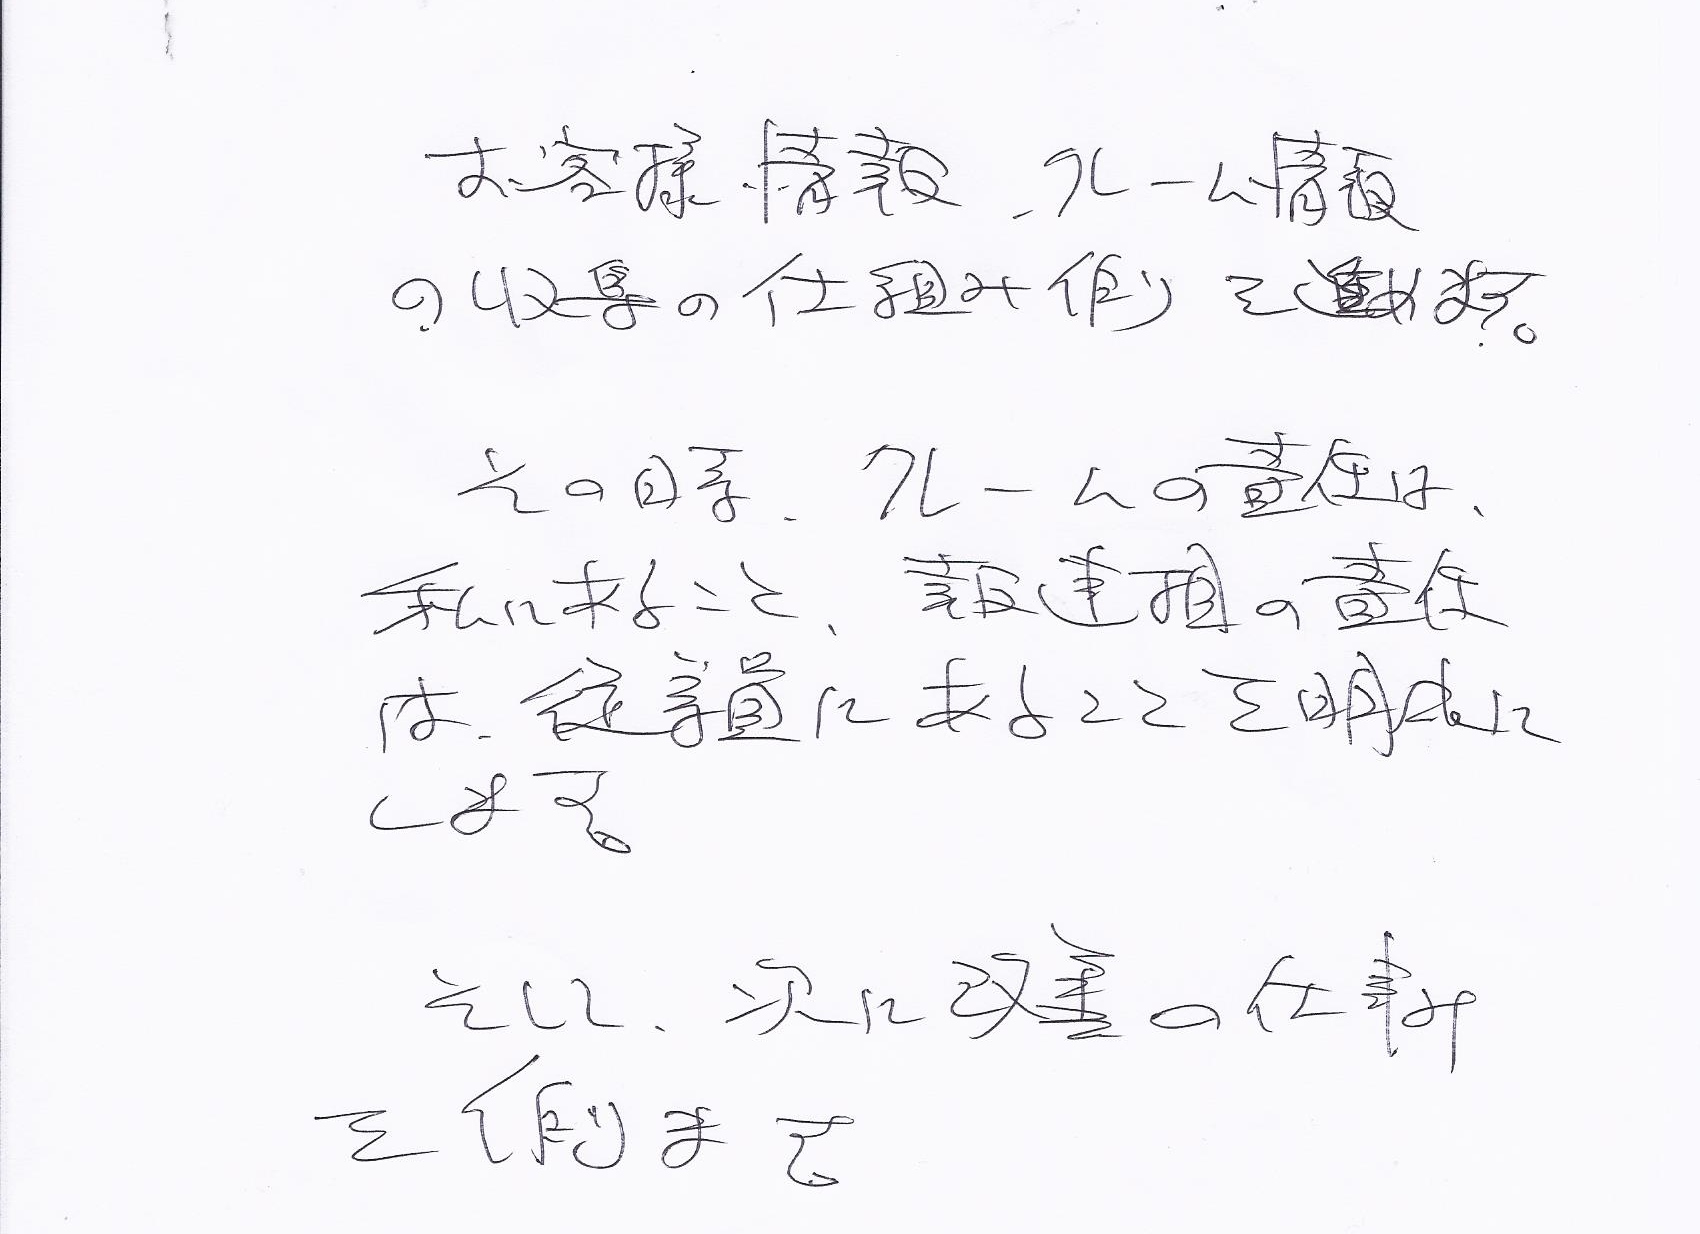 お客様情報、クレーム情報
の収集の仕組み創りを進めます。
その時、クレームの責任は、
私にあること、報連相の責任
は、従業員にあることを明確に
します。
そして、次に改善の仕事み
を創ります